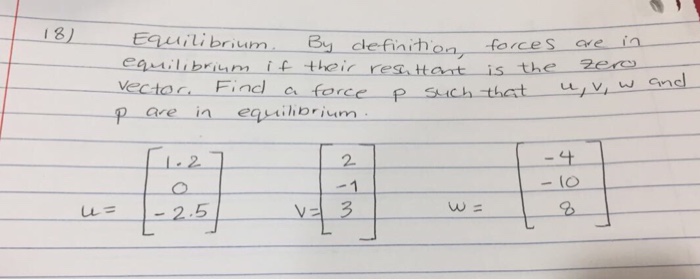 18) Equilibrium. By definition, forces are in
equilibrium if their resultant is the zero
vector. Find a force p such that u, v, w and
p are in equilibrium.
u = [1.2 0 -2.5] v = [2 -1 3] w = [-4 -10 8]